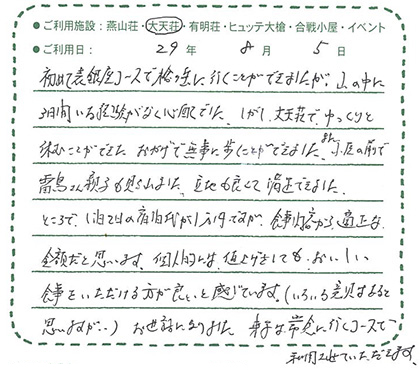 ●ご利用施設：燕山荘・大天荘・有明荘・ヒュッテ大槍・合戦小屋・イベント
●ご利用日： 29年 8月 5日
初めて表銀座コースで槍ヶ岳に行くことができましたが、山の中に
3日間いる経験がなく心配でした。しかし、大天荘で、ゆっくりと
休むことができた おかげで無事に歩くことができました。また小屋の前で
雷鳥さん親子も見られました、立地も良くて 満足できました。
ところで、1泊2食の宿泊代が ですが、食事内容から適正な
金額だと思います。個人的には、値上げをしても、おいしい
食事をいただける方が良いと感じています。(いろいろ意見はあると
思いますが‥) お世話になりました 常念に行くコースで
利用させていただきます。